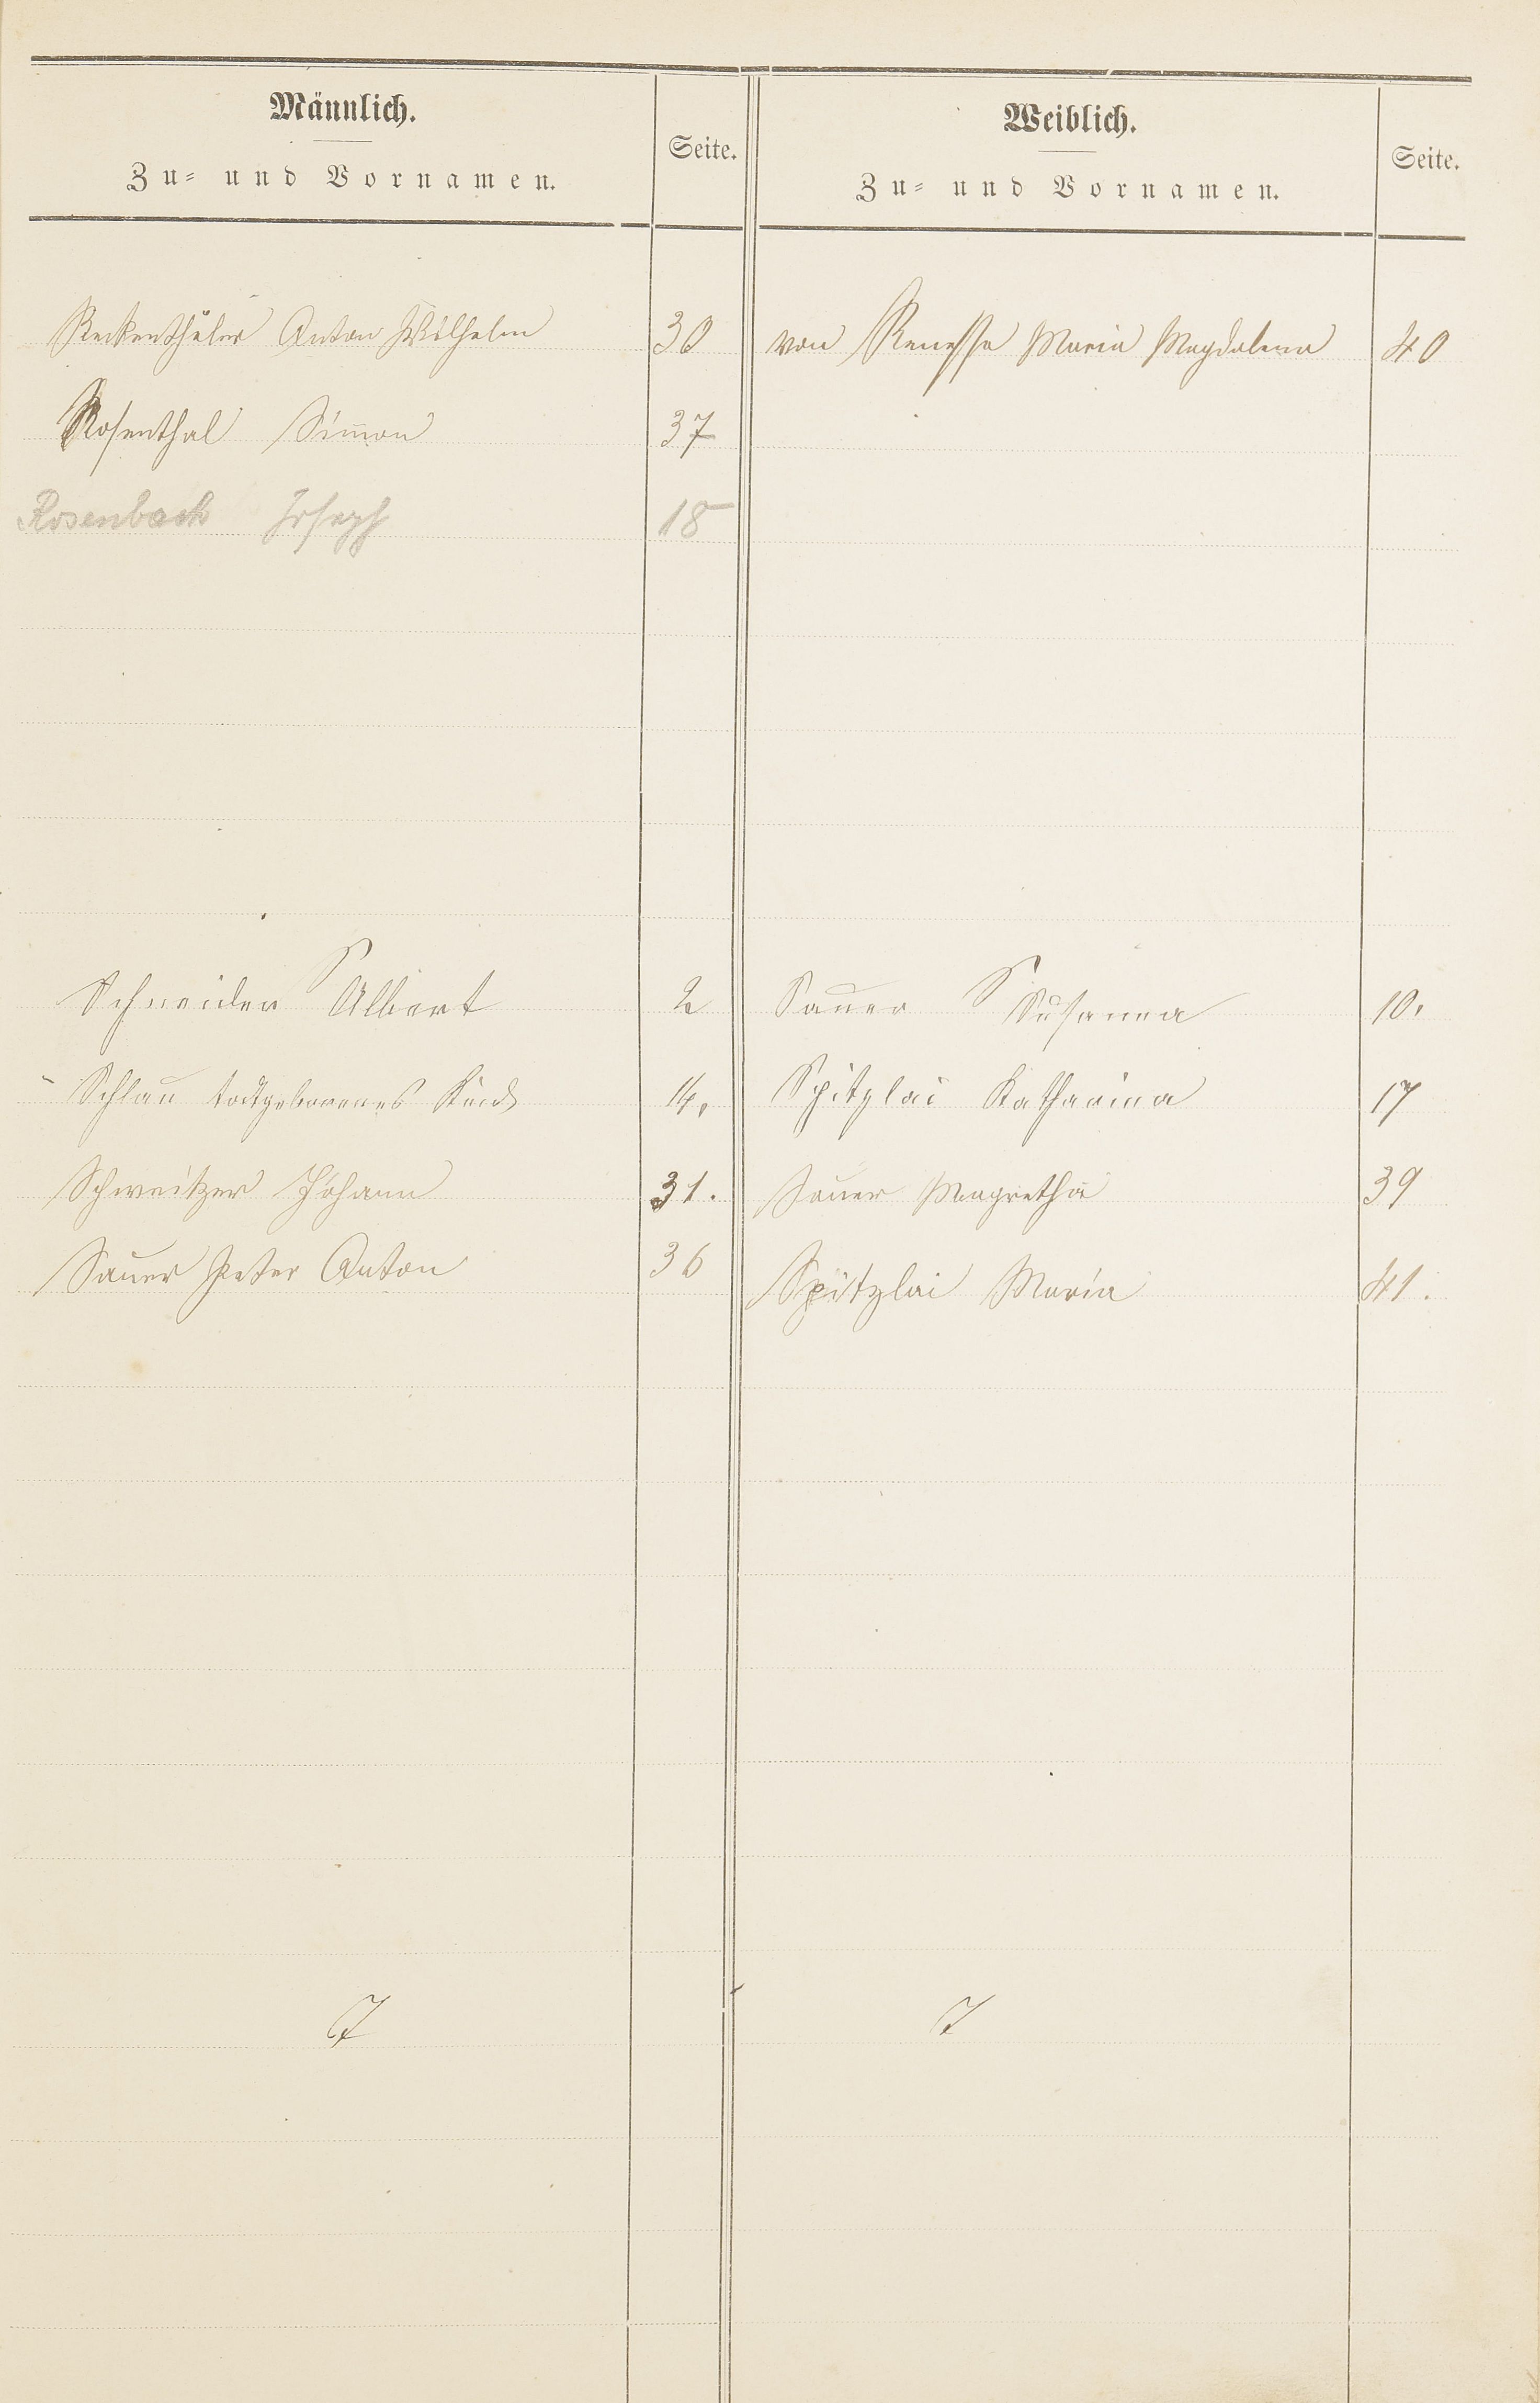 Männlich.
Zu- und Vornamen.
Seite.
Weiblich.
Zu- und Vornamen.
Seite.
Reckenthäler Anton Wilhelm 30
von Renesse Maria Magdalena 40
Rosenthal Simon 37
Rosenbach Joseph 18
S
S
Schneider Albert 2
Sauer Susanna 10.
Schlau todtgeborenes Kind 14.
Spitzlai Katharina 17
Schweitzer Johann 31.
Sauer Magretha 39
Sauer Peter Anton 36
Spitzlai Maria 41.